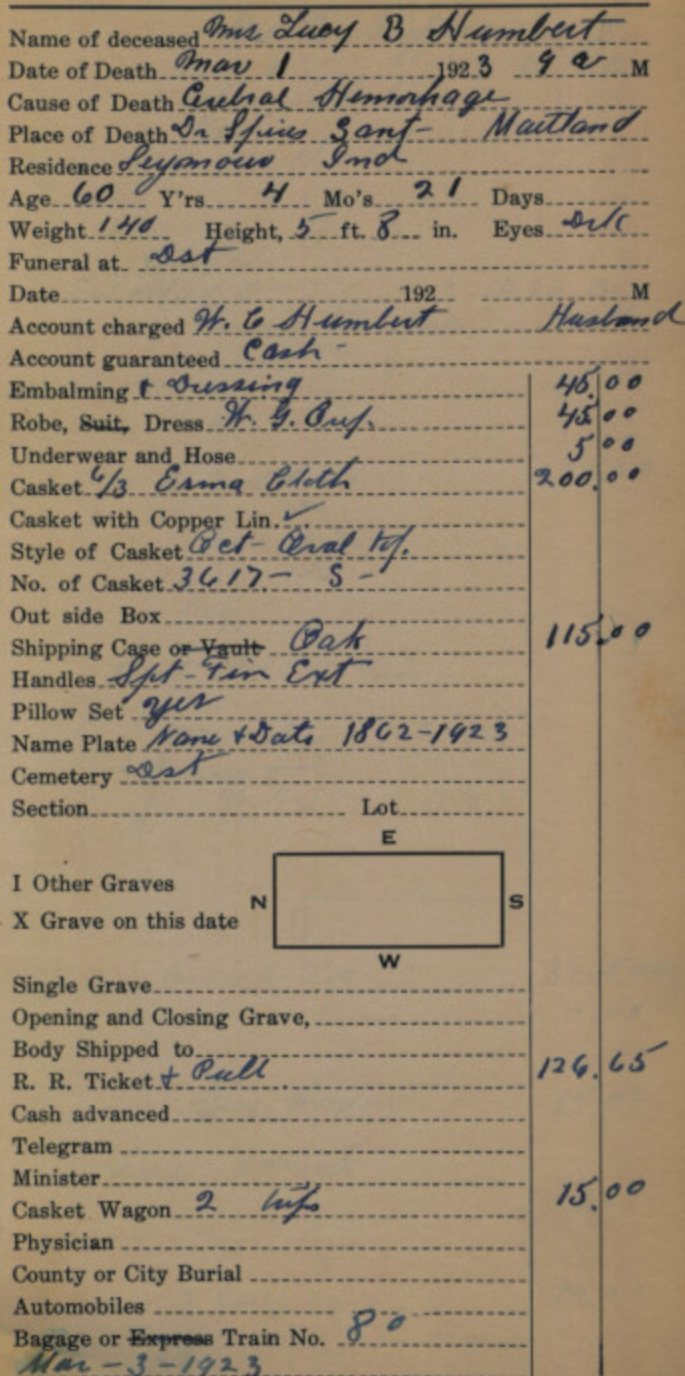 Name of deceased Mrs Lucy B Humbert
Date of Death Mar 1 1923 9 a M
Cause of Death Cerebral Hemorhage
Place of Death Dr Spiers Sant- Maitland
Residence Seymour Ind
Age 60 Y'rs 4 Mo's 21 Days
Weight 140 Height, 5 ft. 8 in. Eyes Drk
Funeral at Dst
Date 192 M
Account charged W. C Humbert Husband
Account guaranteed Cash-
Embalming & Dressing 45.00
Robe, Suit, Dress W. G. 45.00
Underwear and Hose 5 00
Casket 6/3 Erma Cloth 200.00
Casket with Copper Lin. ✓
Style of Casket Oct- Oval
No. of Casket 3617- S-
Out side Box
Shipping Case or Vault Oak 115.00
Handles Ext
Pillow Set yes
Name Plate Name & Date 1862-1923
Cemetery Dst
Section Lot
E
I Other Graves
N S
X Grave on this date
W
Single Grave
Opening and Closing Grave,
Body Shipped to
R. R. Ticket & Pull 126.65
Cash advanced
Telegram
Minister
Casket Wagon 2 trips 15.00
Physician
County or City Burial
Automobiles
Bagage or Express Train No. 80
Mar-3-1923